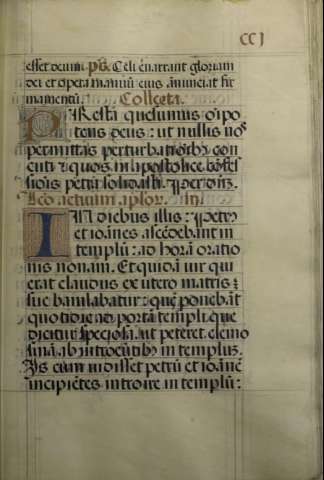 CCI
esset deum. ps. Celi enarrant gloriam
dei et opera manuū eius annunciat fir
mamentū. Collecta.
PResta quesumus oīpo
tens deus: ut nullis nos
permittas perturbatiōibꝰ con
cuti: quos in apostolice cōfes
sionis petra solidasti. per dn̄m.
Leo actuum aplor. in
IN diebus illis: petrꝰ
et ioānes ascēdebant in
templū: ad horā oratio
nis nonam. Et quidā uir qui
erat claudus ex utero matris:
sue baiulabatur: quē ponebāt
quotidie ad portā templi que
dicitur speciosa. ut peteret elemo
sinā ab introeūtibꝰ in templus.
Is cum uidisset petrū et ioānē
incipiētes introire in templū: